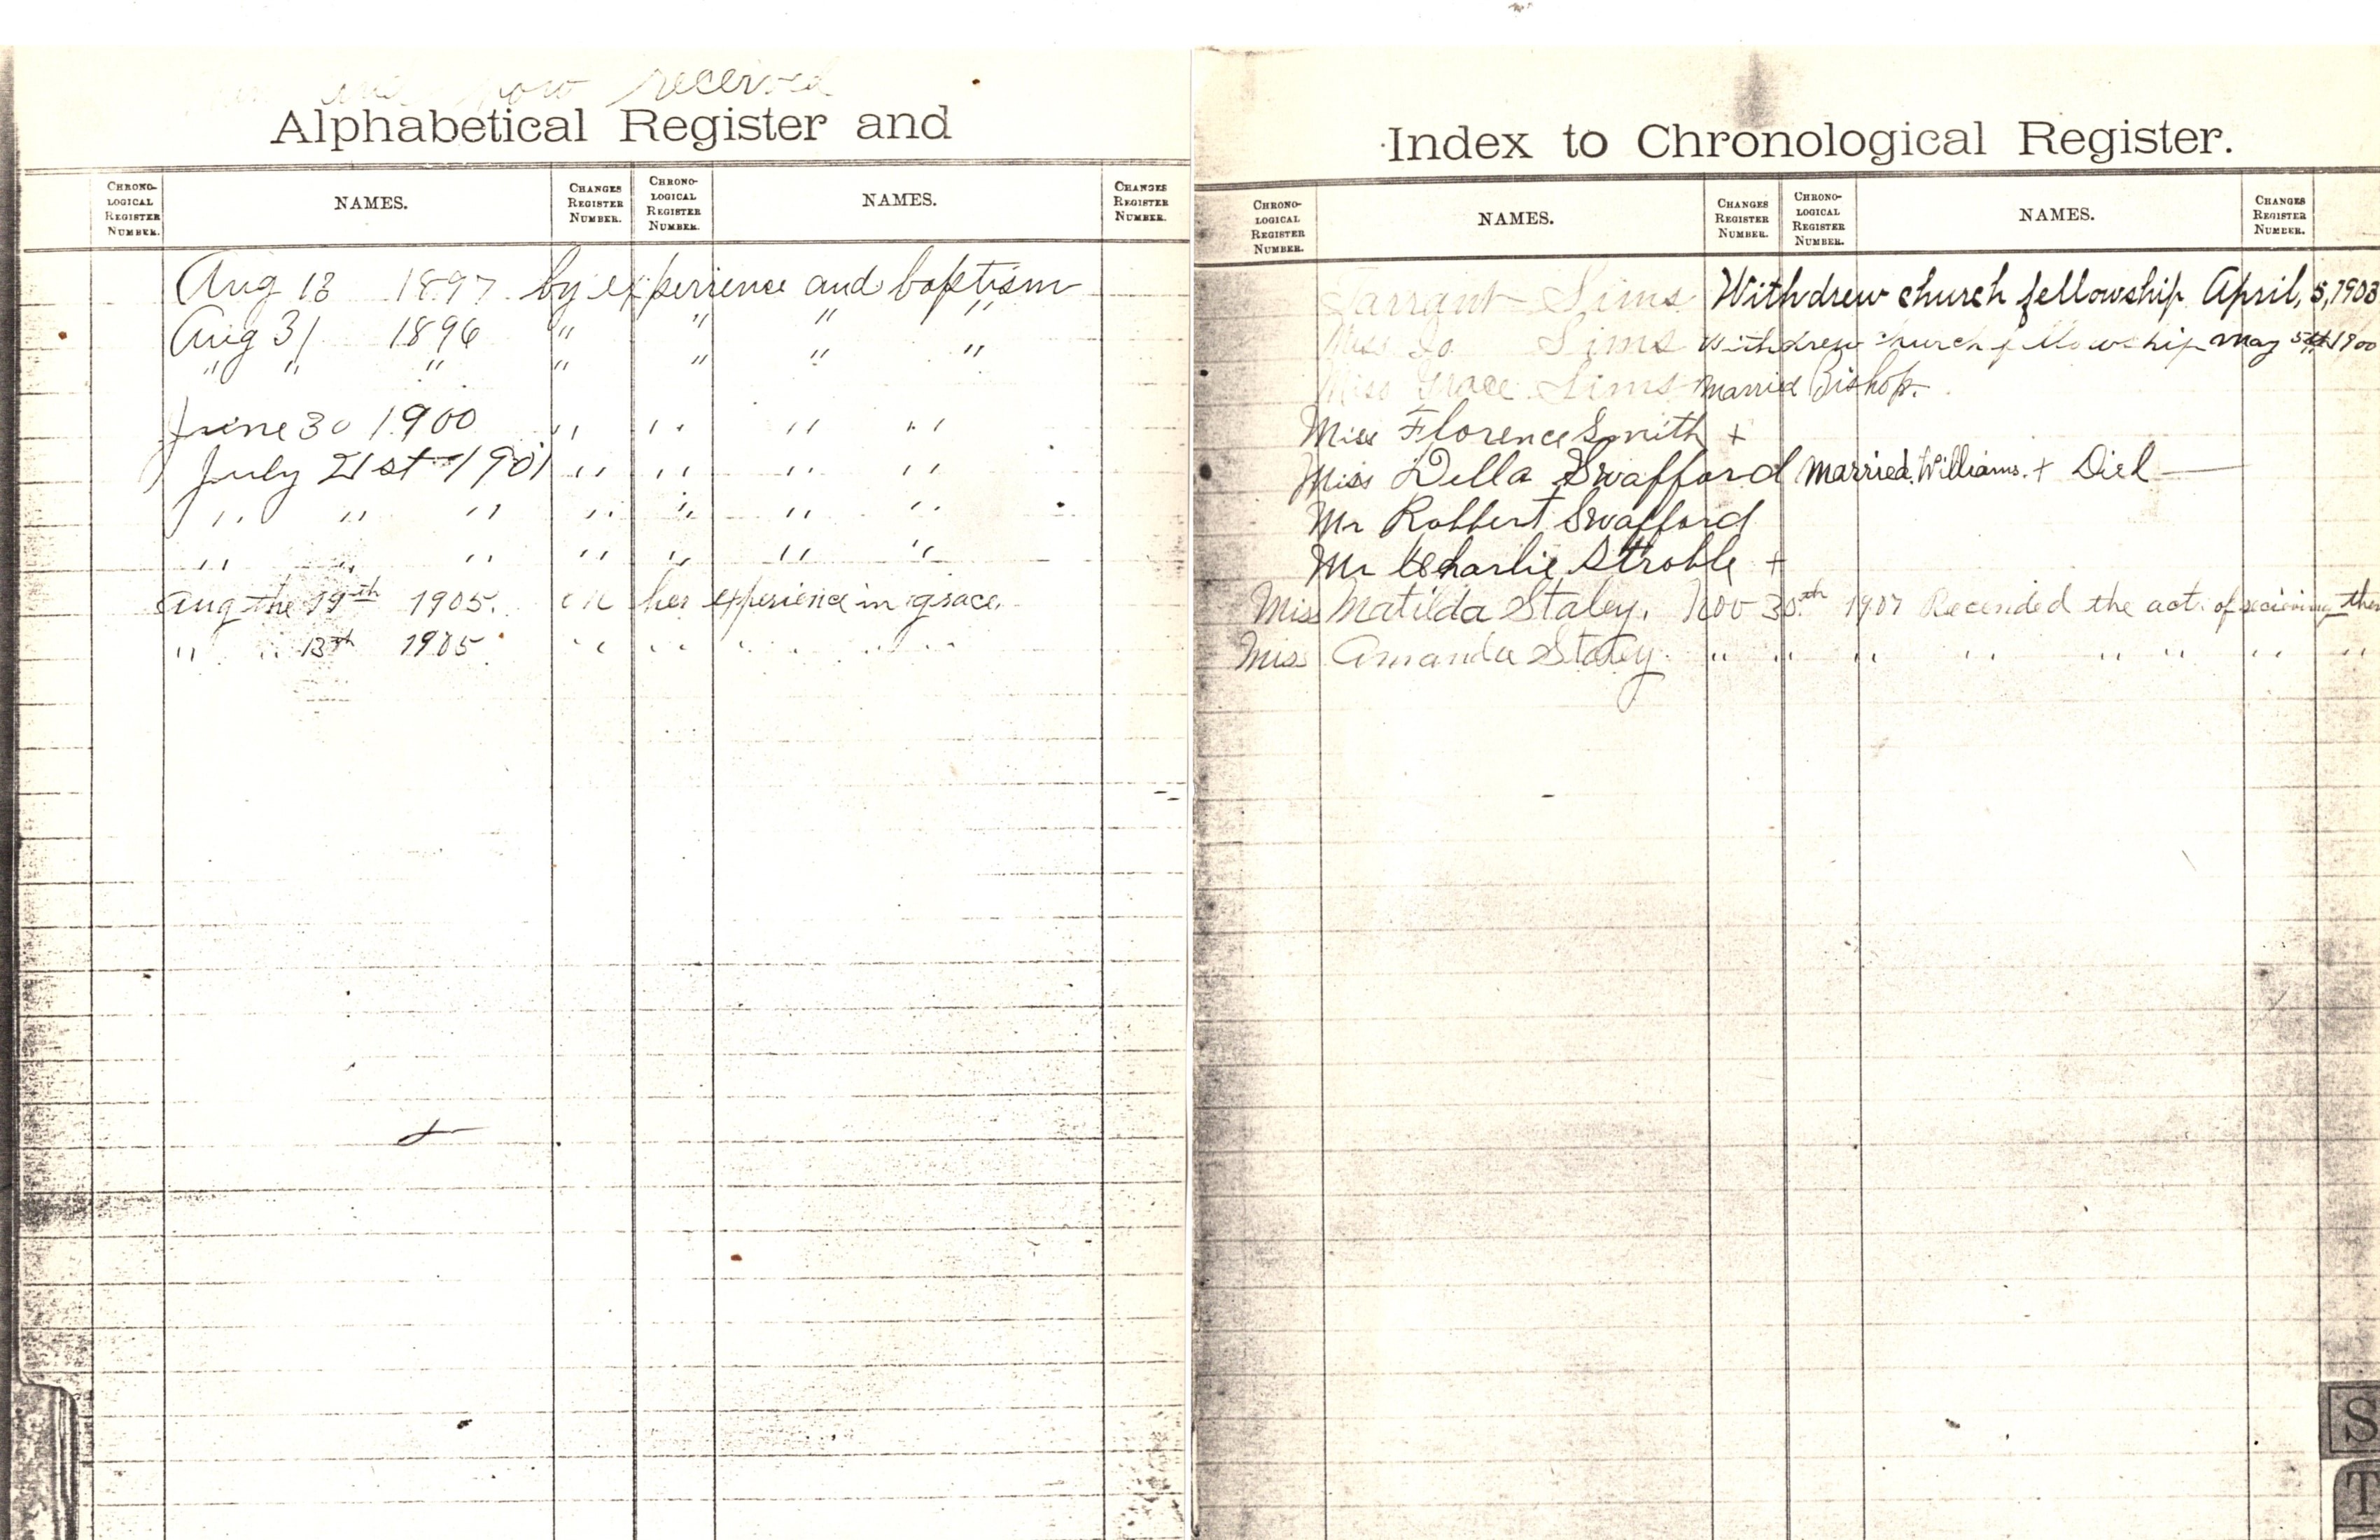 and how received
Alphabetical Register and
CHRONO-LOGICAL REGISTER NUMBER. NAMES. CHANGES REGISTER NUMBER. CHRONO-LOGICAL REGISTER NUMBER. NAMES. CHANGES REGISTER NUMBER.
Aug 13 1897 by experience and baptism
Aug 31 1896 " " " "
" " " " " " "
June 30 1900 " " " "
July 21st 1901 " " " "
" " " " " " "
" " " " " " "
Aug the 19th 1905. on her experience in grace.
" " 13th 1905 " " " " " "
Index to Chronological Register.
CHRONO-LOGICAL REGISTER NUMBER. NAMES. CHANGES REGISTER NUMBER. CHRONO-LOGICAL REGISTER NUMBER. NAMES. CHANGES REGISTER NUMBER.
Tarrant Sims Withdrew church fellowship April, 5, 1903
Miss Jo Sims Withdrew church fellowship may 5th 1900
Miss Grace Sims Married Bishop.
Miss Florence Smith +
Miss Della Swafford Married Williams. + Died
Mr Robbert Swafford
Mr Charlie Stroble +
Miss Matilda Staley. Nov 30th 1907 Recended the act of recieving them
Miss Amanda Staley. " " " " " " " "
S
T